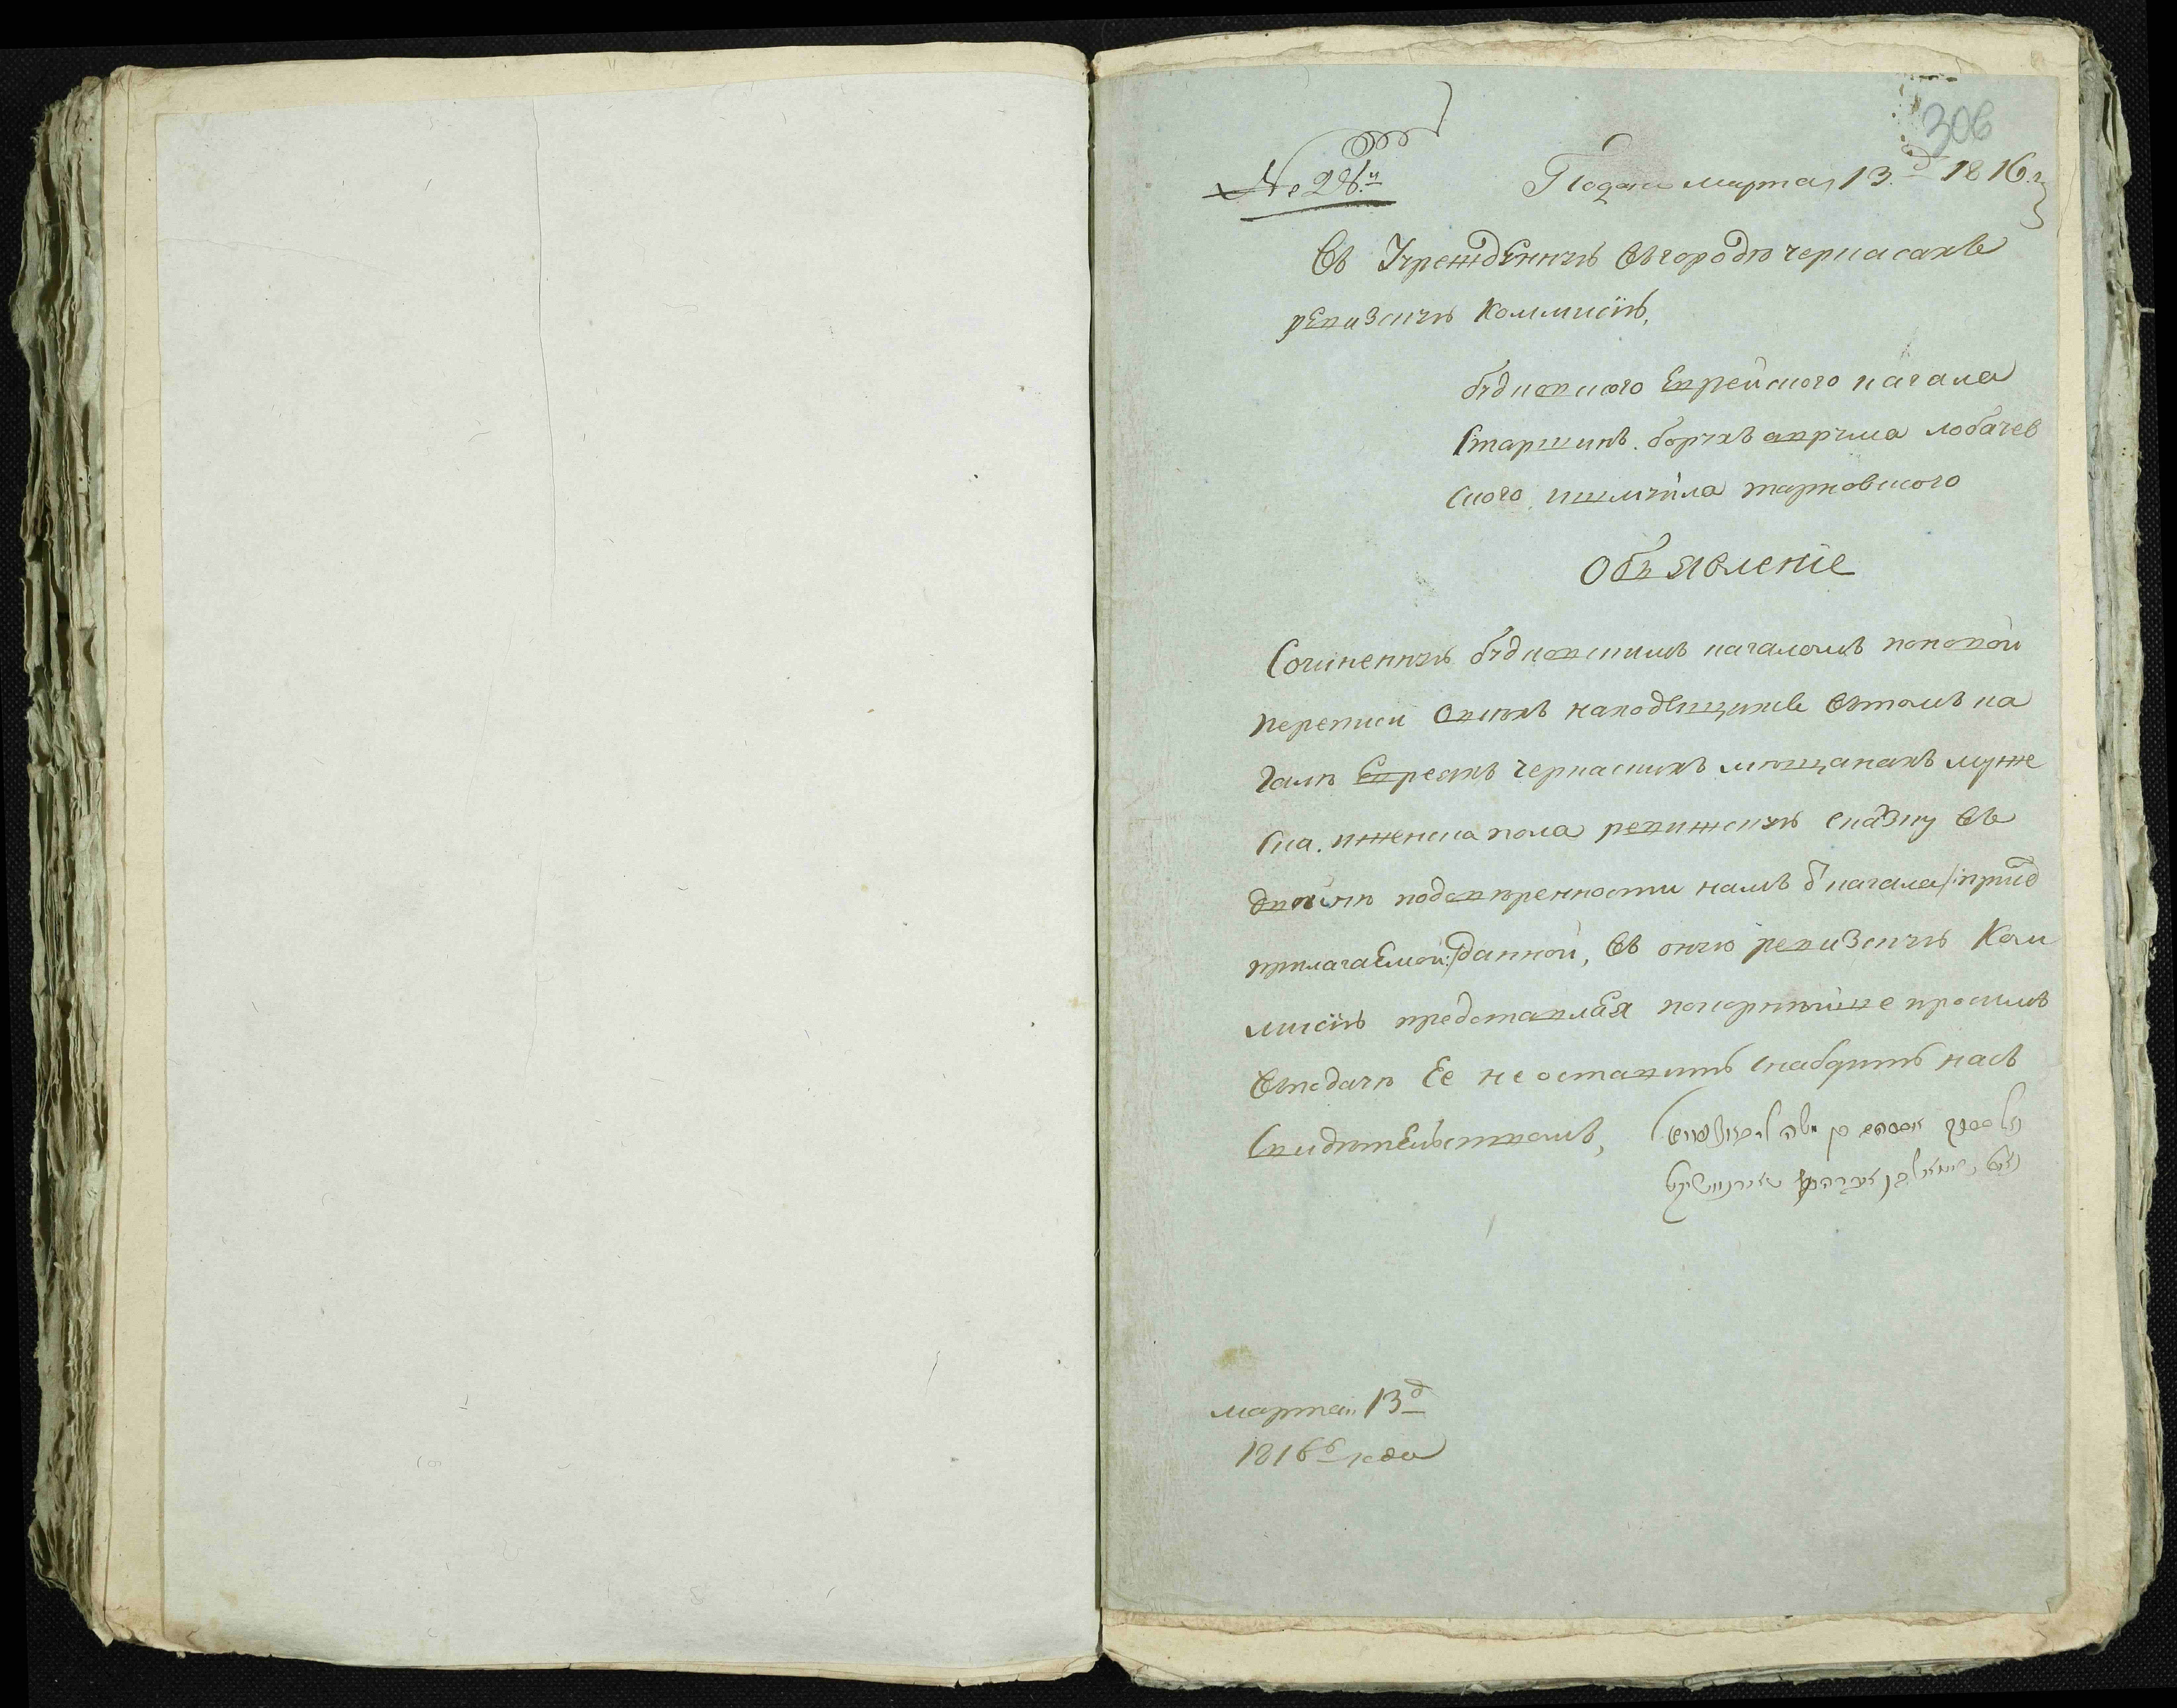 306
№ 28.й
Подана марта 13.д 1816.г
Въ Учрежденную въ городѣ черкасахъ
ревизскую Коммисію,
будковского Еврейского кагала
Старшинъ. борухъ аврума лобачев
ского, ишмуйла тарновского
Объявленіе
Сочиненную будковскимъ кагаломъ поновой
переписи О всехъ находящихся въ томъ ка
галѣ Евреяхъ черкаскихъ мещанахъ муже
ска. и женска пола ревижскую скаску въ
двойнѣ подоверенности намъ от кагала /:при сем
прилагаемой:/ данной, въ оную ревизскую Ком
мисію представляя покорнейше просимъ
въ подачи Ее не оставить снабдить насъ
Свидетельствомъ,
марта 13д
1816го года